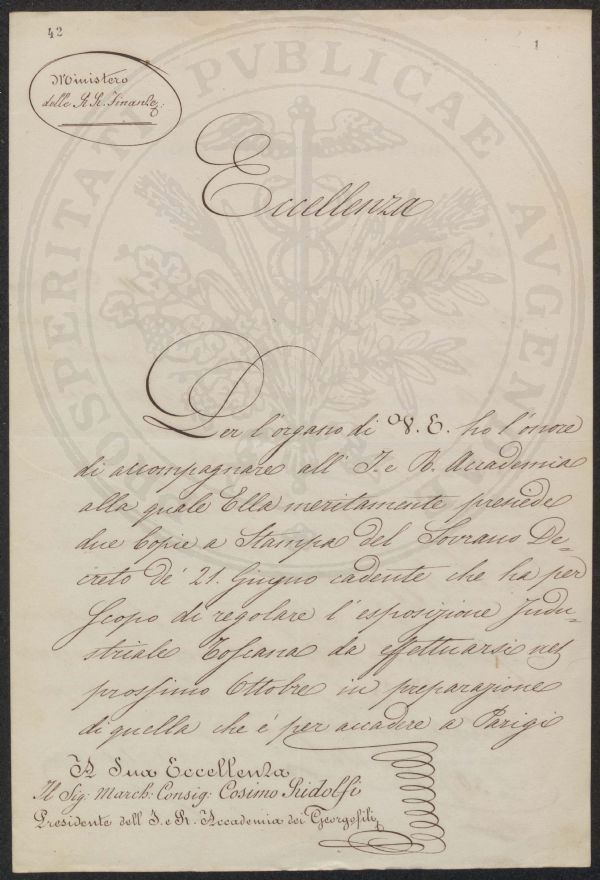 42
1
Ministero
delle R R. Finanze.
Eccellenza
Per l'organo di V. E. ho l'onore
di accompagnare all' I. e R. Accademia
alla quale Ella meritamente presiede
due Copie a Stampa del Sovrano De-
creto de' 21. Giugno cadente che ha per
Scopo di regolare l'esposizione Indu-
striale Toscana da effettuarsi nel
prossimo Ottobre in preparazione
di quella che è per accadere a Parigi
A Sua Eccellenza
Il Sig: March: Consig: Cosimo Ridolfi
Presidente dell' I. e R. Accademia dei Georgofili
PROSPERITATI PVBLICAE AVGENDAE